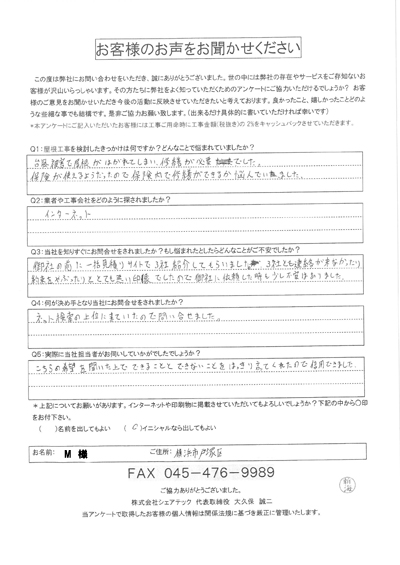 お客様のお声をお聞かせください
この度は弊社にお問い合わせをいただき、誠にありがとうございました。世の中には弊社の存在やサービスをご存知ないお
客様が沢山いらっしゃいます。その方たちに弊社をよく知っていただくためのアンケートにご協力いただけるでしょうか? お客
様のご意見をお聞かせいただき今後の活動に反映させていただきたいと考えております。良かったこと、嬉しかったことどのよ
うな些細な事でも結構です。是非ご協力お願い致します。(出来るだけ具体的に書いていただければ幸いです)
*本アンケートにご記入いただいたお客様には工事ご用命時に工事金額(税抜き)の2%をキャッシュバックさせていただきます。
Q1:屋根工事を検討したきっかけは何ですか?どんなことで悩まれていましたか?
台風被害で屋根がはがれてしまい、修繕が必要でした。
保険が使えるようだったので保険内で修繕ができるか悩んでいました。
Q2:業者や工事会社をどのように探されましたか?
インターネット
Q3:当社を知りすぐにお問合せをされましたか?もし悩まれたとしたらどんなことがご不安でしたか?
御社の前に一括見積りサイトで3社紹介してもらいました。3社とも連絡が来なかったり
約束をやぶったりととても悪い印象でしたので御社に依頼した時も少し不安はありました。
Q4:何が決め手となり当社にお問合せをされましたか?
ネット検索の上位に来ていたので問い合せました。
Q5:実際に当社担当者がお伺いしていかがでしたでしょうか?
こちらの希望を聞いた上でできることとできないことをはっきり言ってくれたので信用できました。
*上記についてお願いがあります。インターネットや印刷物に掲載させていただいてもよろしいでしょうか?下記の中から〇印
をお付下さい。
( )名前を出してもよい (〇)イニシャルなら出してもよい
お名前: M 様 ご住所: 横浜市戸塚区
FAX 045-476-9989
ご協力ありがとうございました。
株式会社シェアテック 代表取締役 大久保 誠二
当アンケートで取得したお客様の個人情報は関係法規に基づき厳正に管理いたします。